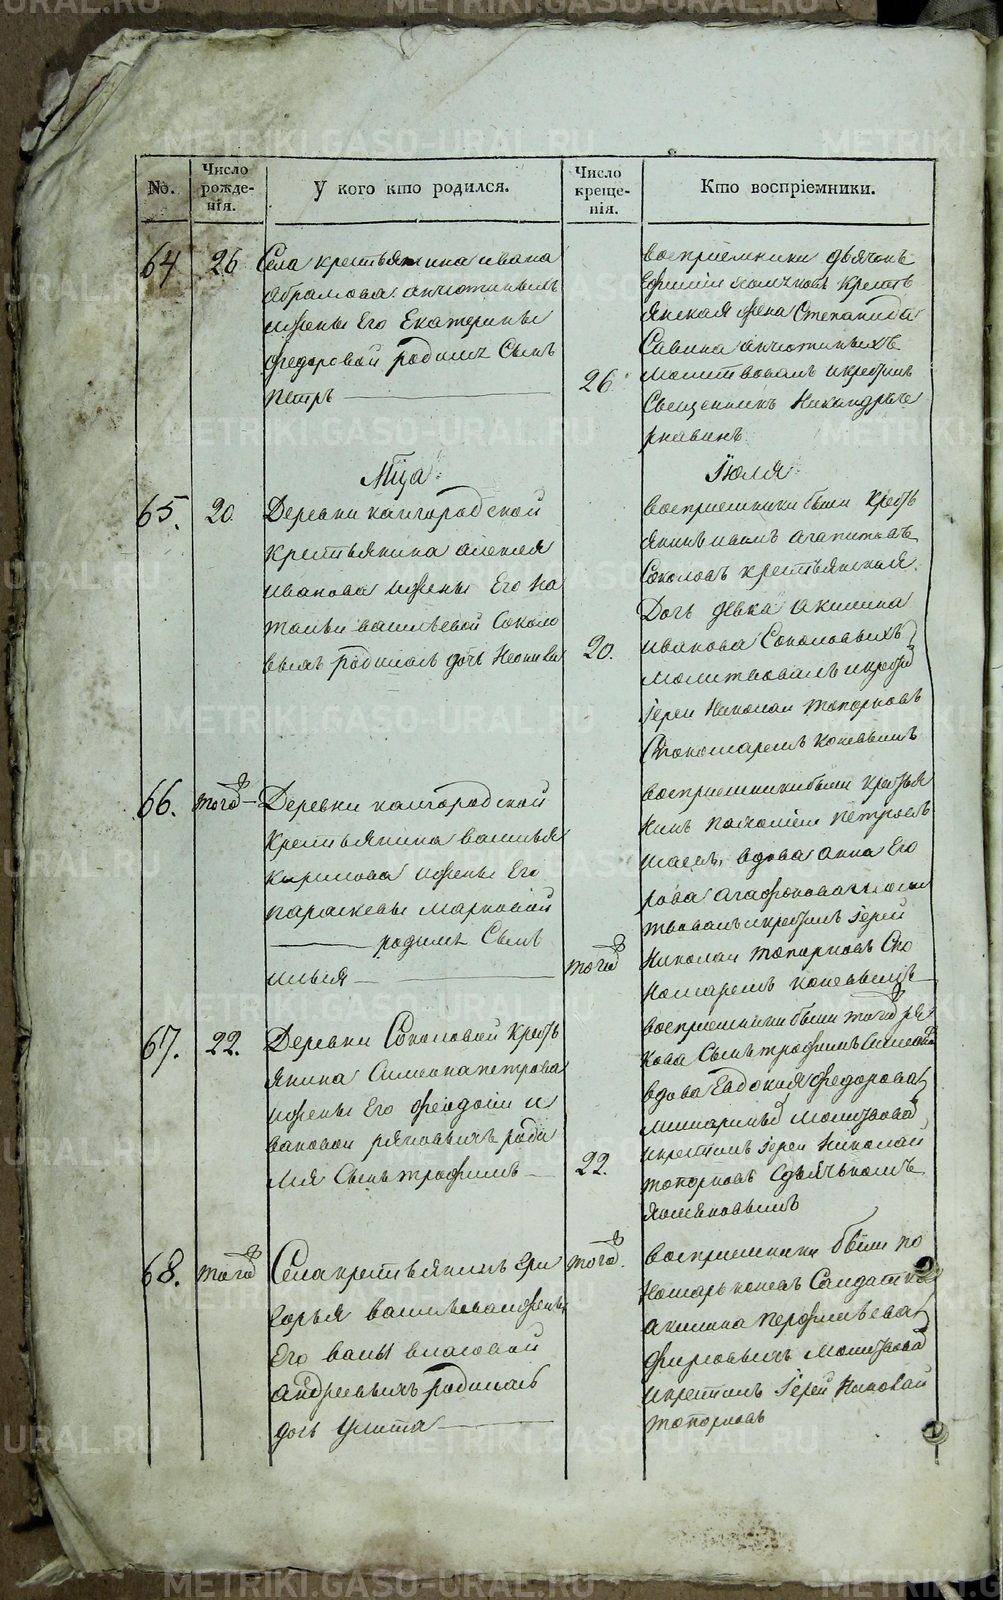 No.
Число рожде-нія.
У кого кто родился.
Число креще-нія.
Кто воспріемники.
64
26
Села крестьянина ивана
Абрамова
ижены Его Екатерины
федоровой родился Сынъ
петръ
26
восприемники дьячокъ
крестъ
янская жена Степанида
Савина
Молитвовалъ икрестилъ
Священникъ Никандръ
Мца
Іюля
65.
20
Деревни кайгородской
крестьянина алексея
иванова ижены Его На
тальи васильевой Соколо
выхъ родилась дочь Неонила
20.
восприемники были крестъ
янинъ агапитовъ
Соколовъ крестьянская
Дочь девка акилина
иванова Соколовыхъ
молитвовалъ икрестил
Іерей Николай топорковъ
Спономаремъ коневымъ
66.
тогоже
Деревни кайгородской
крестьянина василья
кирилова ижены Его
параскевы марковой
родился Сынъ
илья
тогоже
восприемники были крестья
нинъ петровъ
вдова анна Его
рова агафонова моли
твовалъ икрестилъ Іерей
Николай топорковъ Спо
номаремъ коневымъ
67.
22.
Деревни Соколовой крестъ
янина Симеона петрова
ижены Его феодосіи и
вановой роди
лся Сынъ трофимъ
22.
восприемники были тогоже ря
кова Сынъ трофимъ
вдова Евдокия федорова
молитвовал
икрестилъ Іерей Николай
топорковъ Сдьячькомъ
68.
тогоже
Села крестьянинъ Гри
горья васильева ижены
Его власовой
андреевыхъ родилась
дочь улита
тогоже.
восприемники были по
номарь коневъ Салдатка
акилина перфильева
молитвовал
икрестилъ Іерей Николай
топорковъ
METRIKI.GASO-URAL.RU